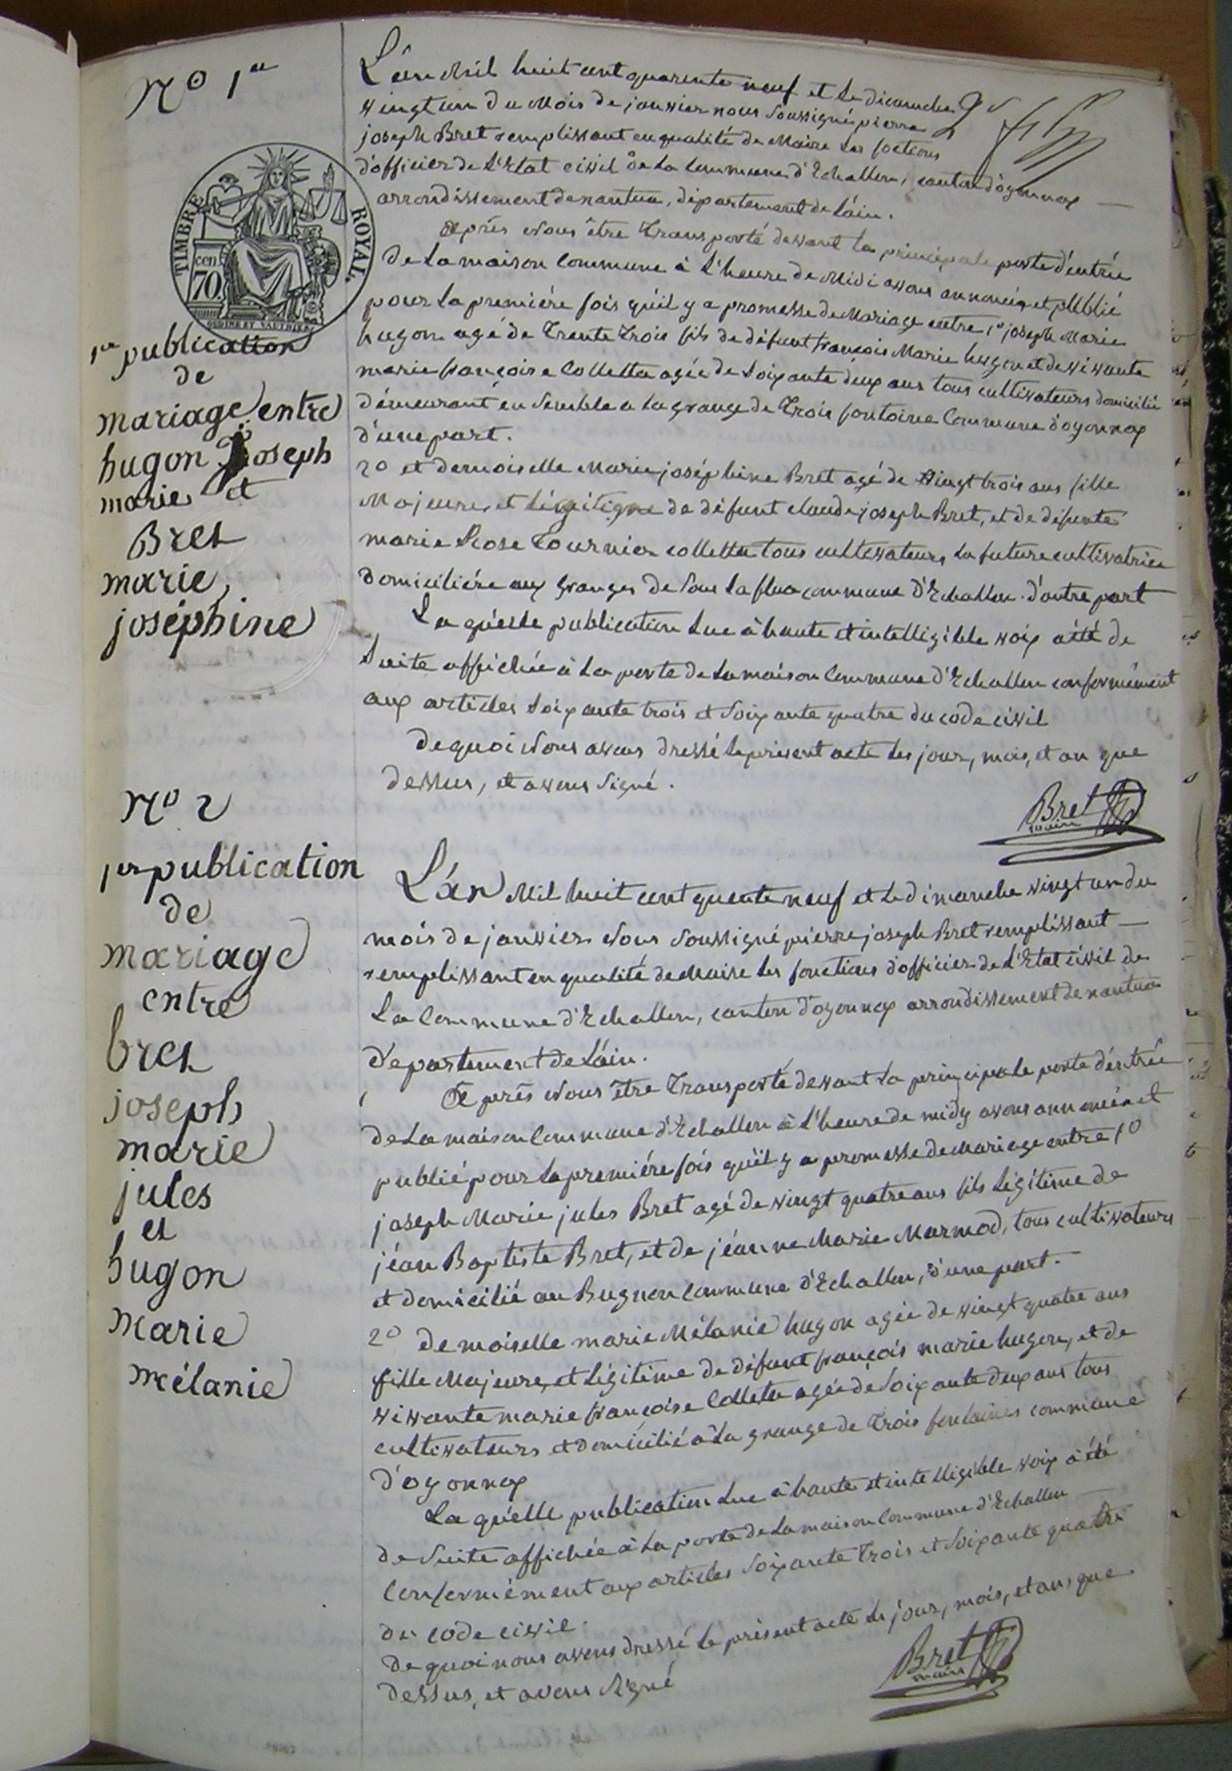 N° 1er
L'an Mil huit cent quarente neuf et le dimanche
vingt un du Mois de janvier nous Soussigné pierre
joseph Bret remplissant en qualité de Maire les foctions
d'officier de L'Etat civil de La Commune d'Echallon, canton d'oyonnax
arrondissement de nantua, département de L'ain.
TIMBRE ROYAL
cen. 70.
Après Nous être Transporté devant la principale porte d'entrée
de La maison Commune à L'heure de Midi avons annoncé et publié
pour La première fois quil y a promesse de Mariage entre 1° joseph Marie
hugon agé de Trente Trois fils de défunt françois Marie hugon et de vivante
marie françoise Colletta agée de Soixante deux ans tous cultivateurs domicilié
démeurant en Semble a La grange de Trois fontaine Commune d'oyonnax
d'une part.
2° et demoiselle Marie joséphine Bret agé de Vingt trois ans fille
Majeure et Légitigme de défunt claude joseph Bret, et de défunte
marie Rose Tournier colletta tous cultivateurs la future cultivatrice
domiciliére aux granges de Sous La commune d'Echallon d'autre part
La quélle publication Lue à haute et intelligible voix a été de
Suite affichée à La porte de La maison Commune d'Echallon conformément
aux articles Soixante trois et Soixante quatre du code civil
de quoi Nous avons dressé le présent acte les jour, mois, et an que
dessus, et avons Signé.
Bret
maire
1re publication
de
mariage entre
hugon Joseph
marie et
Bret
marie
joséphine
N° 2
1re publication
de
mariage
entre
bret
joseph
marie
jules
et
hugon
Marie
mélanie
L'an Mil huit cent quarente neuf et Le dimanche vingt un du
mois de janvier Nous Soussigné pierre joseph Bret remplissant
remplissant en qualité de Maire les fonctions d'officier de L'Etat civil de
La Commune d'Echallon, canton d'oyonnax arrondissement de nantua
département de L'ain.
Après Nous être Transporté devant La principale porte d'entrée
de La maison Commune d'Echallon à L'heure de midy avons annoncé et
publié pour La première fois qu'il y a promesse de Mariage entre 1°
joseph Marie jules Bret agé de vingt quatre ans fils Légitime de
jéan Baptiste Bret, et de jéanne Marie Marmod, tous cultivateurs
et domicilié au Bugnon Commune d'Echallon, d'une part.
2° demoiselle marie Mélanie hugon agée de vingt quatre ans
fille Majeure, et Légitime de défunt françois marie hugon, et de
vivante marie françoise Colletta agée de Soixante deux ans tous
cultivateurs et domicilié à La grange de Trois fontaines commune
d'oyonnax
La quélle publication Lue à haute et intelligible voix a été
de Suite affichée à La porte de La maison Commune d'Echallon
Conformément aux articles Soixante Trois et Soixante quatre
du code civil.
de quoi nous avons dressé le présent acte les jour, mois, et ans que
dessus, et avons Signé
Bret
maire